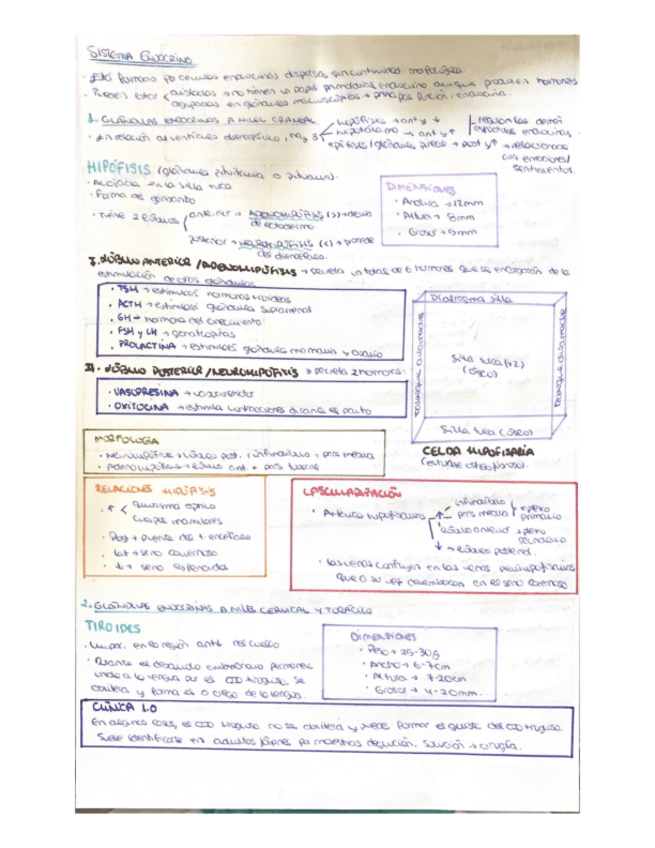 SISTEMA ENDOCRINO
· Está formado por células endocrinas dispersas sin continuidad morfológica.
· Pueden estar < aisladas → no tienen un papel primordial endocrino aunque producen hormonas
agrupadas en glándulas macroscópicas → principal función: endocrina.
1. GLÁNDULAS ENDOCRINAS A NIVEL CRANEAL
· En relación al ventrículo diencefálico, hay 3
hipófisis → ant y ↓
hipotálamo → ant y ↑
epífisis / glándula pineal → post y ↑ → relacionada
con emociones/
sentimientos.
regulan las demás
estructuras endocrinas.
HIPÓFISIS (glándula pituitaria o pituario).
· Alojada en la silla turca
· Forma de garbancito
· Tiene 2 lóbulos
anterior → ADENOHIPÓFISIS (>) → deriva
de ectodermo
posterior → NEUROHIPÓFISIS (<) → procede
del diencéfalo.
DIMENSIONES
· Anchura → 12mm
· Altura → 8mm
· Grosor → 9mm
I. LÓBULO ANTERIOR / ADENOHIPÓFISIS → secreta un total de 6 hormonas que se encargan de la
estimulación de otras glándulas
· TSH → estimulan hormonas tiroideas
· ACTH → estimulan glándula suprarrenal
· GH → hormona del crecimiento
· FSH y LH → gonadotropinas
· PROLACTINA → estimulan glándula mamaria y ovario
II. LÓBULO POSTERIOR / NEUROHIPÓFISIS → secreta 2 hormonas:
· VASOPRESINA →
· OXITOCINA → estimula contracciones durante el parto
Diafragma silla
Silla turca (x2)
(óseo)
Silla turca (óseo)
CELDA HIPOFISARIA
(estuche osteofibroso).
MORFOLOGÍA
· Neurohipófisis → lóbulo post. + infundíbulo + pars media
· Adenohipófisis → lóbulo ant. + pars tuberal
RELACIONES HIPÓFISIS
· ↑ < quiasma óptico
cuerpos mamilares
· Post → puente del t. encéfalo
· Lat → seno cavernoso
· ↓ → seno esfenoidal
VASCULARIZACIÓN
· Arterias hipofisarias
↑ → infundíbulo
pars media
→ plexo
primario
lóbulo anterior → plexo
secundario
↓ → lóbulo posterior.
· Las venas confluyen en las venas perihipofisarias
que a su vez desembocan en el seno cavernoso
2. GLÁNDULAS ENDOCRINAS A NIVEL CERVICAL Y TORÁCICO
TIROIDES
· Impar. en la región ant. del cuello
· Durante el desarrollo embrionario permanece
unida a la lengua por el CTO tirogloso. Se
oblitera y forma el o ciego de la lengua.
DIMENSIONES
· Peso → 25-30g
· Ancho → 6-7cm
· Altura → 7-20cm
· Grosor → 4-20mm.
CLÍNICA 1.0
En algunos casos, el CTO tirogloso no se oblitera y puede formar el quiste del CTO tirogloso.
Suele identificarse en adultos jóvenes por molestias deglución. Solución → cirugía.